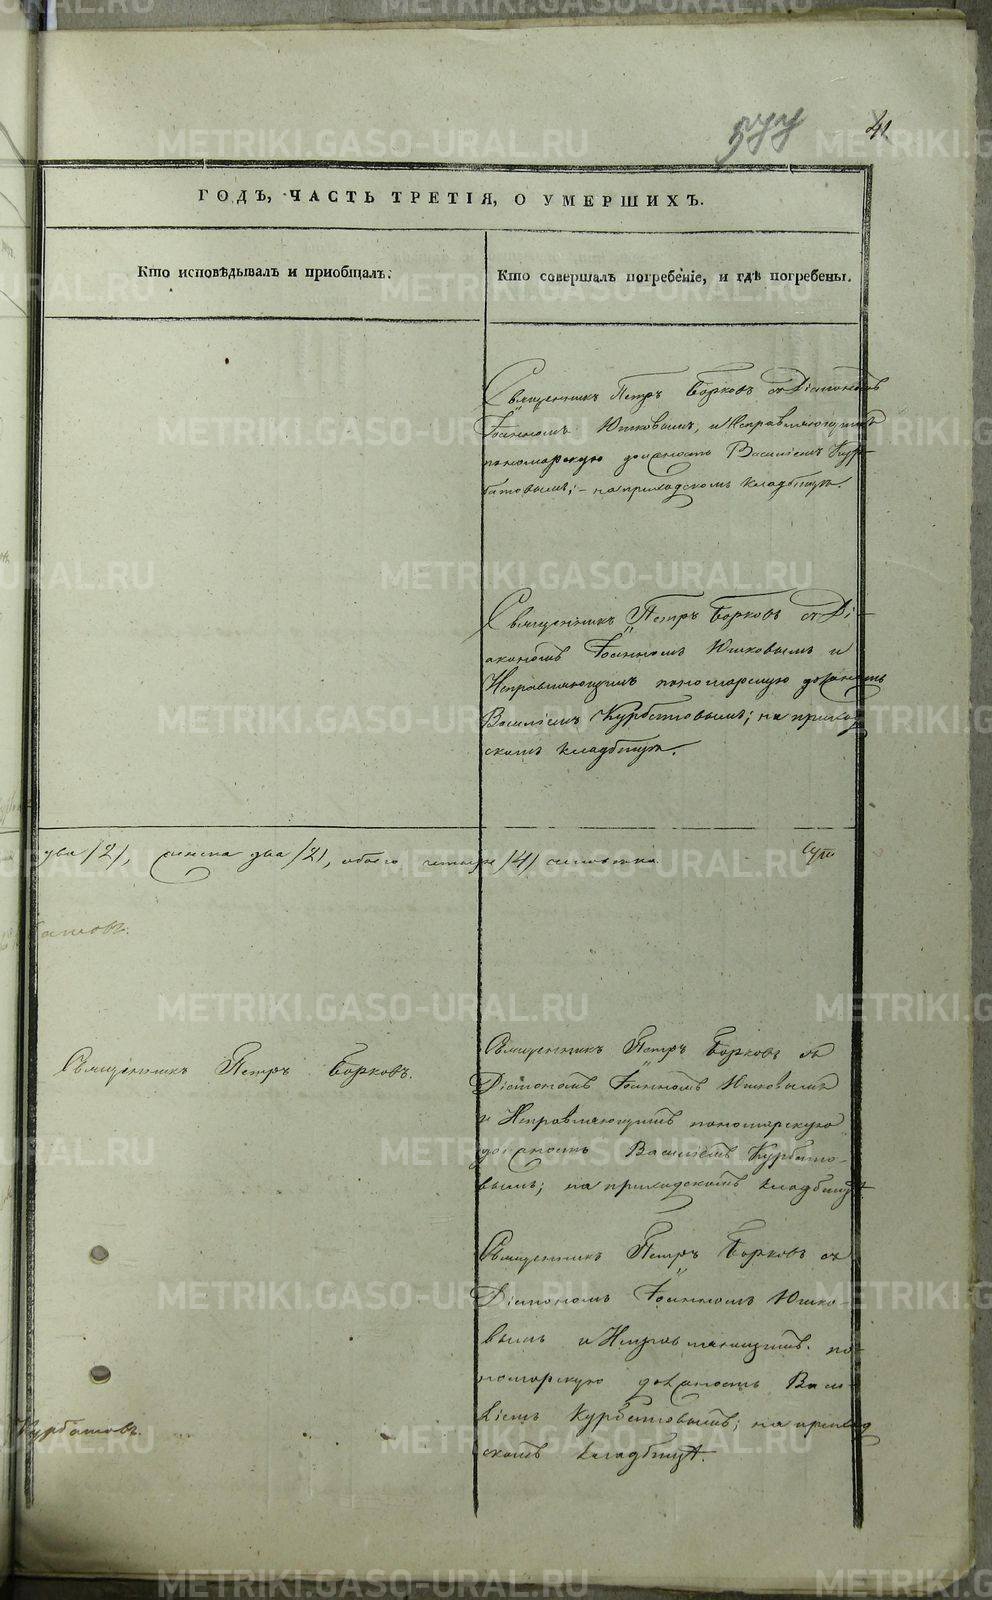 577
41
ГОДЪ, ЧАСТЬ ТРЕТІЯ, О УМЕРШИХЪ.
Кто исповѣдывалъ и пріобщалъ.
Кто совершалъ погребеніе, и гдѣ погребены.
Священникъ Петръ Борковъ съ Діакономъ
Іоанномъ Юшковымъ, и Исправляющимъ
пономарскую должность Василіемъ Кур-
батовымъ; - на приходскомъ кладбищѣ.
Священникъ Петръ Борковъ съ Ді-
акономъ Іоанномъ Юшковымъ и
Исправляющимъ пономарскую должность
Василіемъ Курбатовымъ; на приход
скомъ кладбищѣ.
два /2/, женска два /2/, обоего четыре /4/ человѣка.
батовъ.
Священникъ Петръ Борковъ.
Священникъ Петръ Борковъ съ
Діакономъ Іоанномъ Юшковымъ
и Исправляющимъ пономарскую
должность Василіемъ Курбато-
вымъ; на приходскомъ кладбищѣ
Священникъ Петръ Борковъ съ
Діакономъ Іоанномъ Юшко-
вымъ и Исправляющимъ по-
номарскую должность Васи-
ліемъ Курбатовымъ; на приход
скомъ кладбищѣ.
Курбатовъ.
METRIKI.GASO-URAL.RU